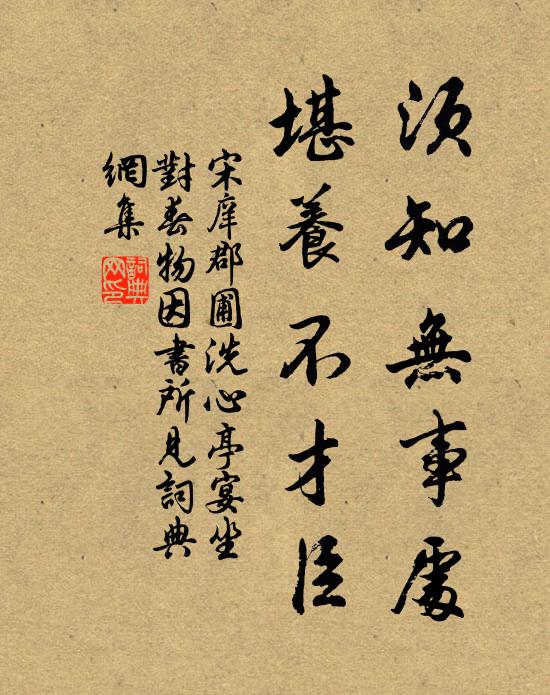 須知無事處
堪養不才臣
宋庠郡圃洗心亭宴坐
對春物因書所見詞典
網集
詞典
网印